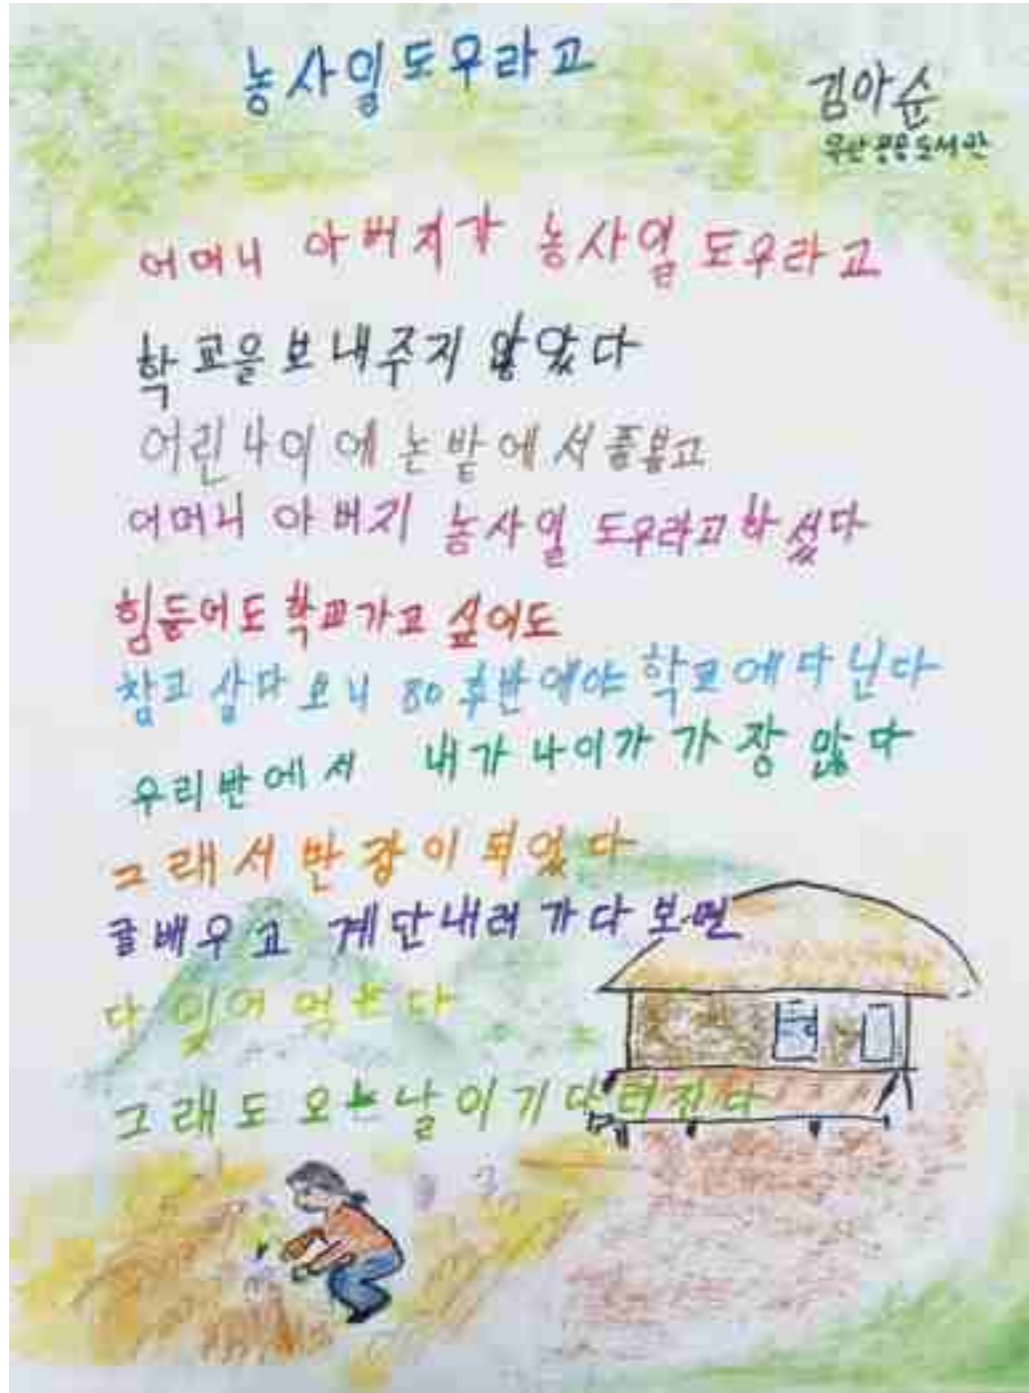 농사일도우라고
김아순
무안공공도서관
어머니 아버지가 농사일 도우라고
학교을 보내주지 않았다
어린나이에 논밭에서 품봅고
어머니 아버지 농사일 도우라고하셨다
힘들어도 학교가고 싶어도
참고 살다 오니 80 후반에야 학교에 다닌다
우리반에서 내가 나이가 가장 많다
그래서 반장이 되었다
글배우고 계단내려 가다 보면
다 잊어 먹는다
그래도 오는날이 기다려진다